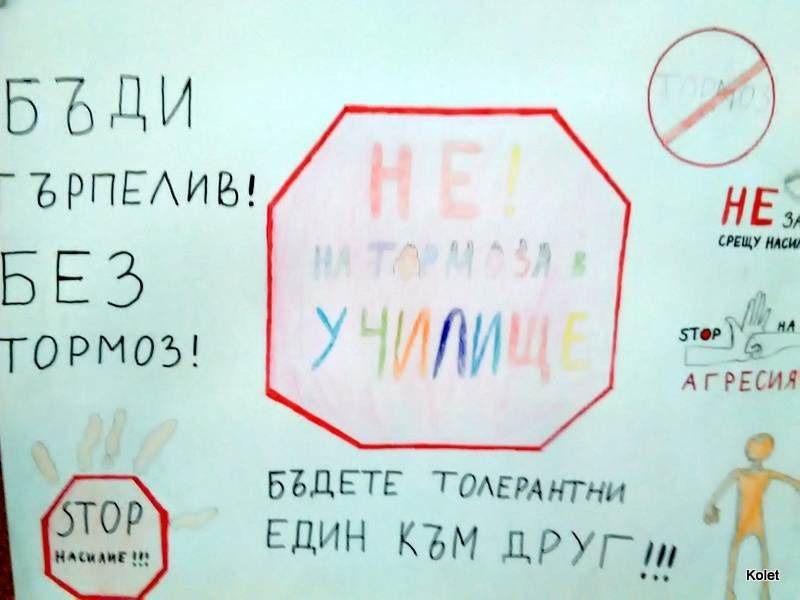 БЪДИ
ТЪРПЕЛИВ!
БЕЗ
ТОРМОЗ!
STOP
НАСИЛИЕ!!!
НЕ!
НА ТОРМОЗА В
УЧИЛИЩЕ
БЪДЕТЕ ТОЛЕРАНТНИ
ЕДИН КЪМ ДРУГ!!!
ТОРМОЗ
НЕ ЗА
СРЕЩУ НАСИЛ
STOP НА
АГРЕСИЯ
Kolet